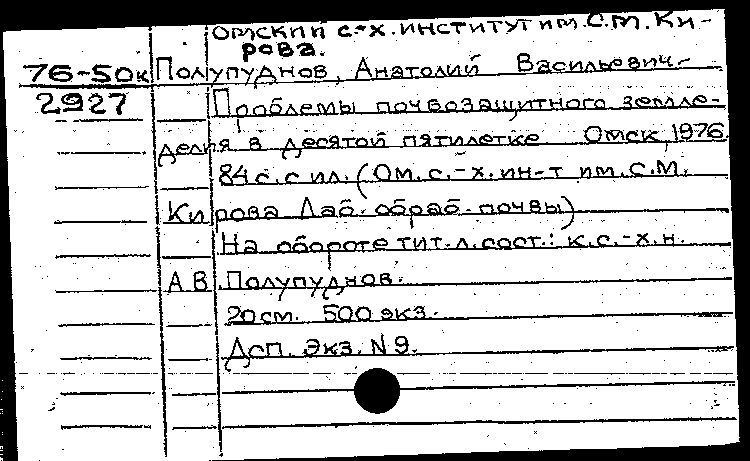 Омский с.-х. институт им. С.М. Ки-
рова.
76-50к Полупуднов, Анатолий Васильевич.-
2927 Проблемы почвозащитного земле-
делия в десятой пятилетке Омск, 1976.
84 с. с ил. (Ом. с.-х. ин-т им. С.М.
Кирова Лаб. обраб. почвы)
На обороте тит. л. сост.: к.с.-х.н.
А В Полупуднов.
20 см. 500 экз.
Дсп. Экз. N 9.